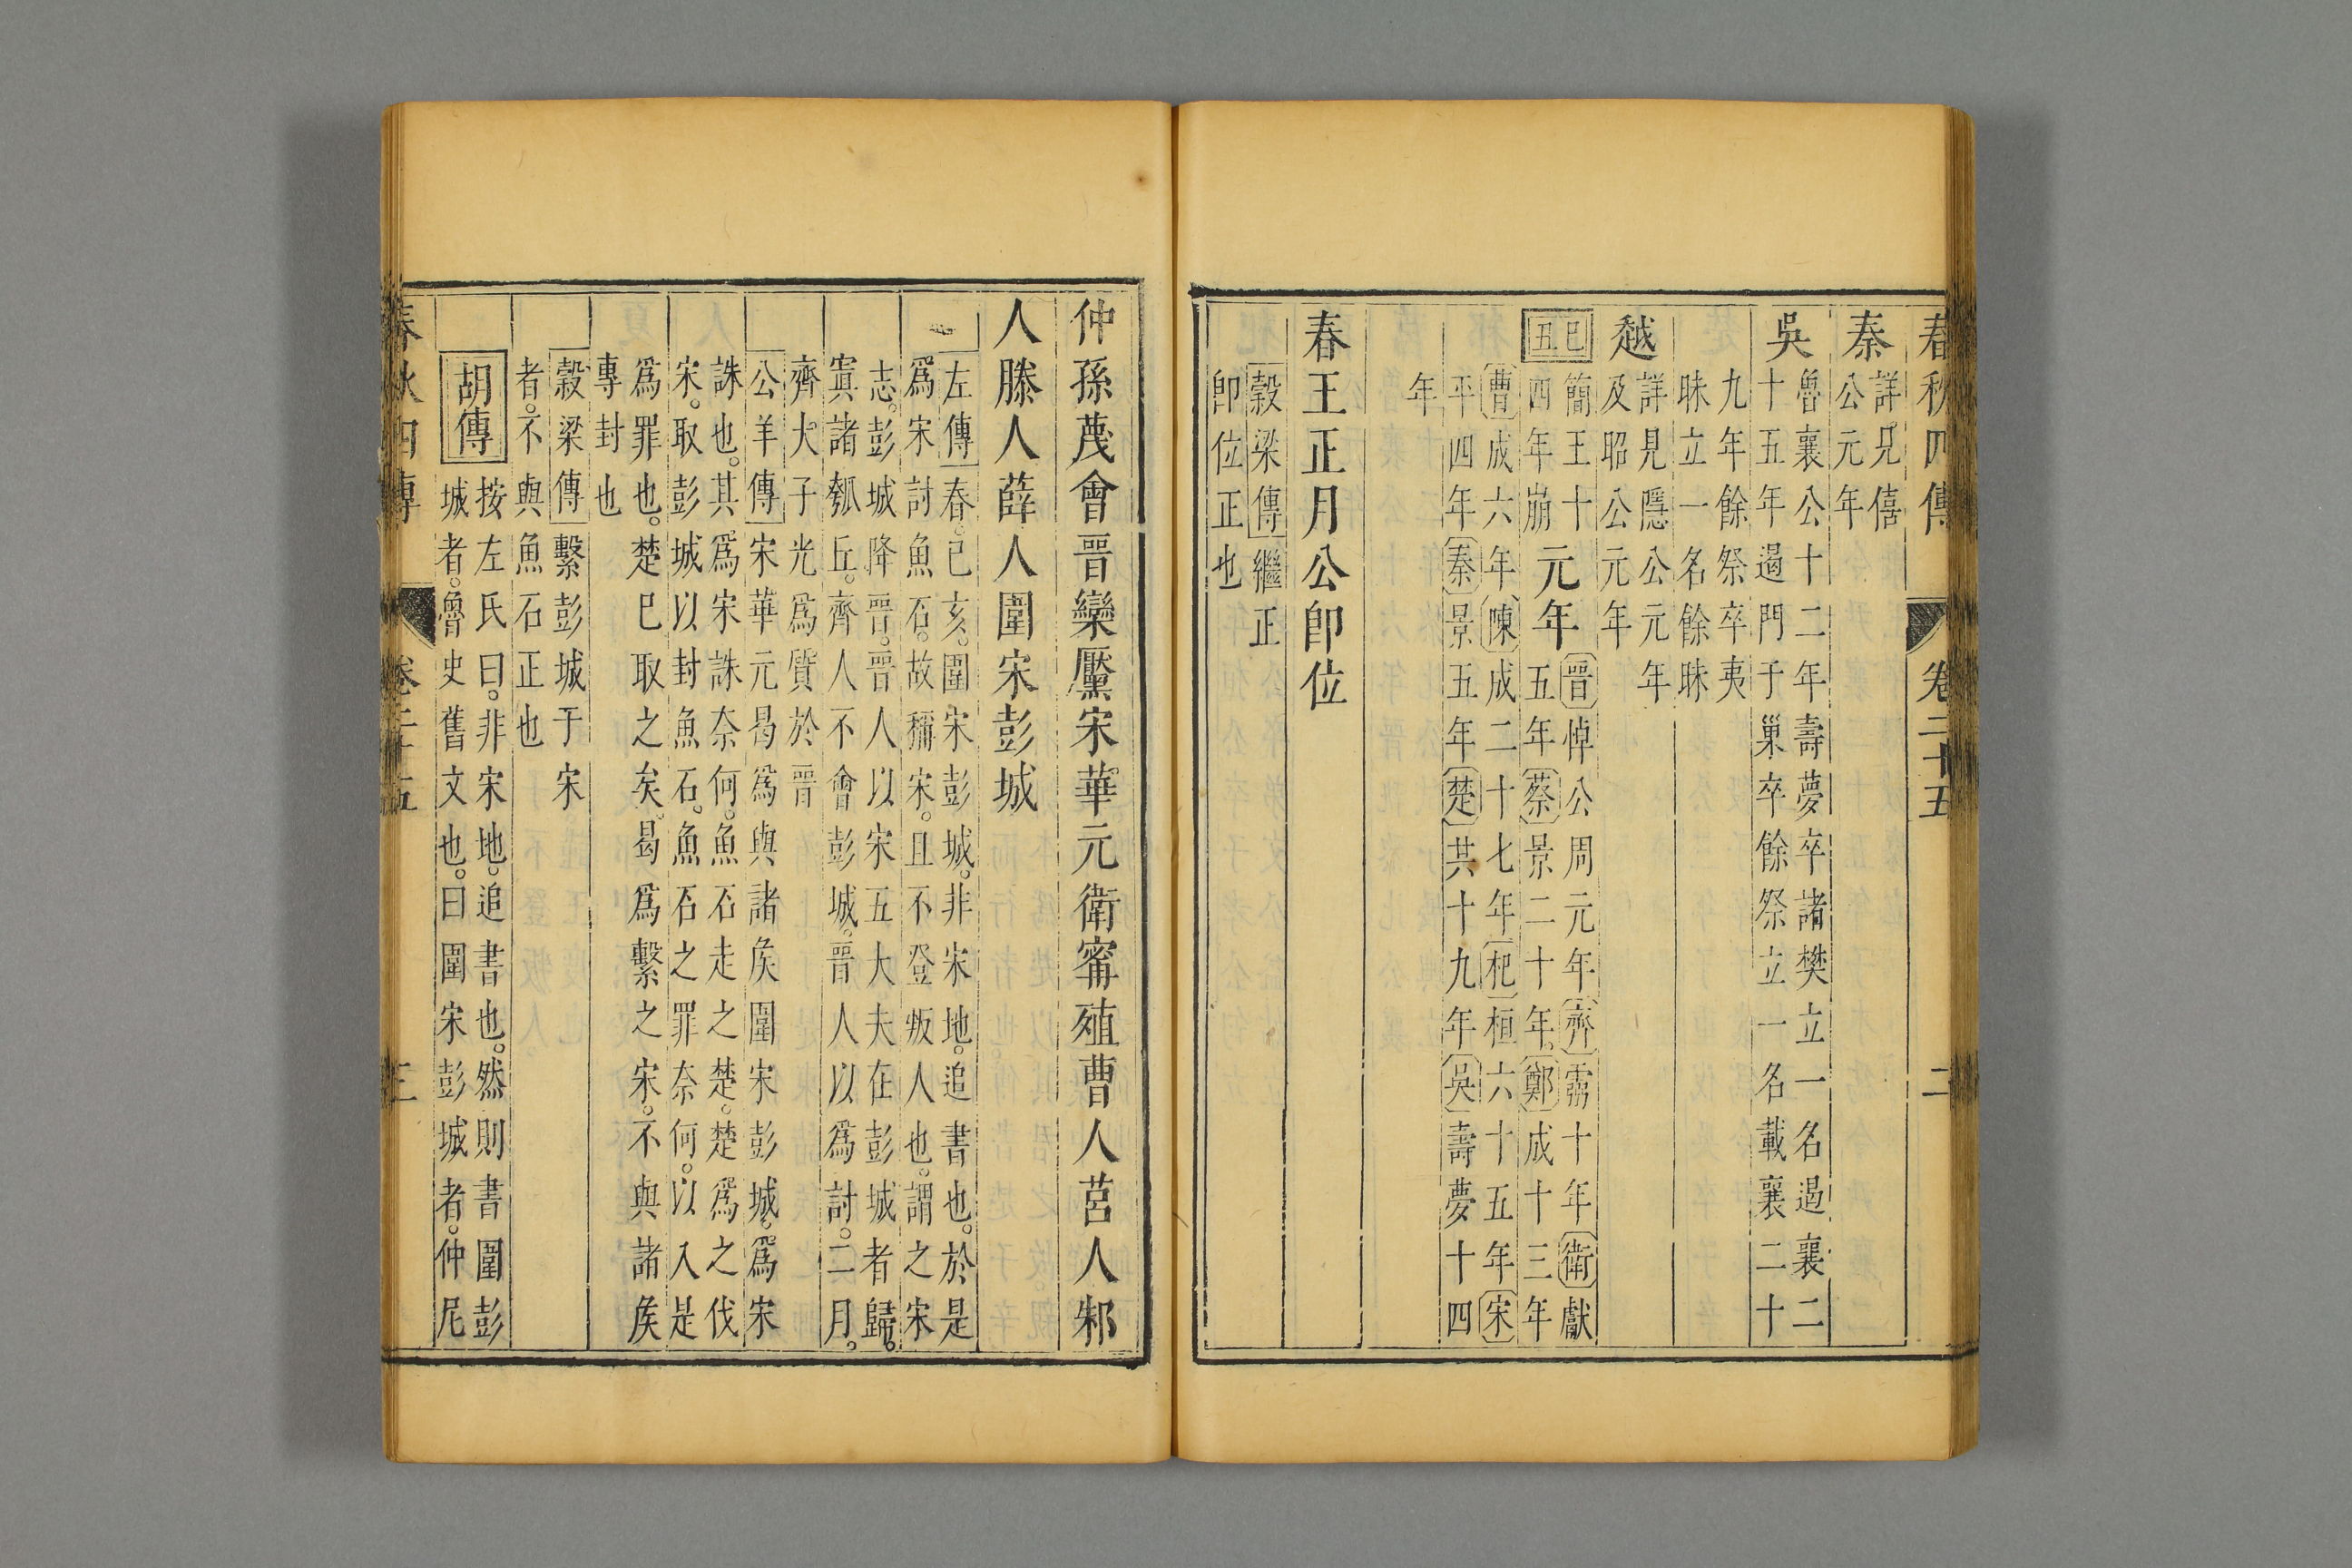 春秋四傳 卷二十五 二
秦 詳見僖
公元年
吳 魯襄公十二年壽夢卒諸樊立一名遏襄二
十五年遏門于巢卒餘祭立一名載襄二十
九年餘祭卒夷
昧立一名餘昧
越 詳見隱公元年
及昭公元年
己丑 簡王十
四年崩
元年
晉悼公周元年齊靈十年衛獻
五年蔡景二十年鄭成十三年
曹成六年陳成二十七年杞桓六十五年宋
平四年秦景五年楚共十九年吳壽夢十四
年
春王正月公卽位
穀梁傳繼正
卽位正也
仲孫蔑會晉欒黶宋華元衛甯殖曹人莒人邾
人滕人薛人圍宋彭城
左傳春。己亥。圍宋彭城。非宋地。追書也。於是
爲宋討魚石。故稱宋。且不登叛人也。謂之宋
志。彭城降晉。晉人以宋五大夫在彭城者歸。
寘諸瓠丘。齊人不會彭城。晉人以爲討。二月。
齊大子光爲質於晉
公羊傳宋華元曷爲與諸侯圍宋彭城。爲宋
誅也。其爲宋誅奈何。魚石走之楚。楚爲之伐
宋。取彭城以封魚石。魚石之罪奈何。以入是
爲罪也。楚已取之矣。曷爲繫之宋。不與諸侯
專封也
穀梁傳繫彭城于宋
者。不與魚石正也
胡傳 按左氏曰。非宋地。追書也。然則書圍彭
城者。魯史舊文也。曰圍宋彭城者。仲尼
春秋四傳 卷二十五 三